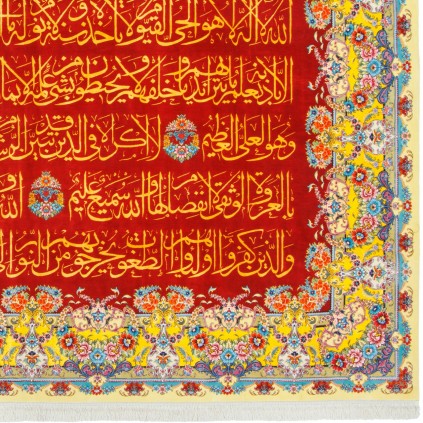 الله لا اله الا هو الحی القیوم لا تاخذه سنة و لا نوم له
الا باذنه یعلم ما بین ایدیهم و ما خلفهم و لا یحیطون بشئ من علمه الا بما
و هو العلی العظیم لا اکراه فی الدین قد تبین
بالعروة الوثقی لا انفصام لها و الله سمیع علیم الله
والذین کفروا اولیاوهم الطاغوت یخرجونهم من النور الی